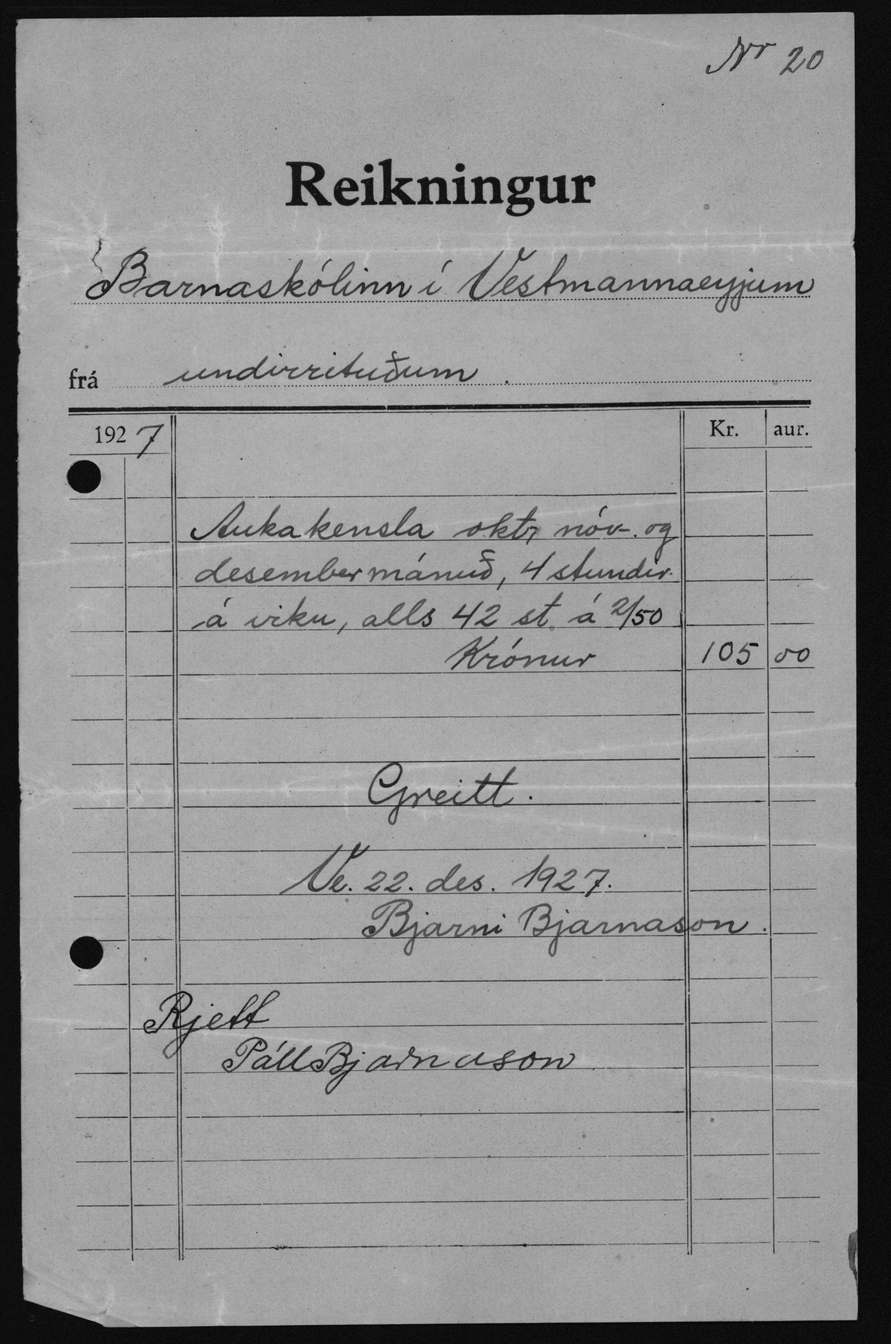 Nr 20
Reikningur
Barnaskólinn í Vestmannaeyjum
frá undirrituðum
1927 Kr. aur.
Aukakensla okt, nóv-. og
desembermánuð, 4 stundir
á viku, alls 42 st. á 2/50
Krónur 105 00
Greitt.
Ve. 22. des. 1927.
Bjarni Bjarnason.
Rjett
Páll Bjarnason